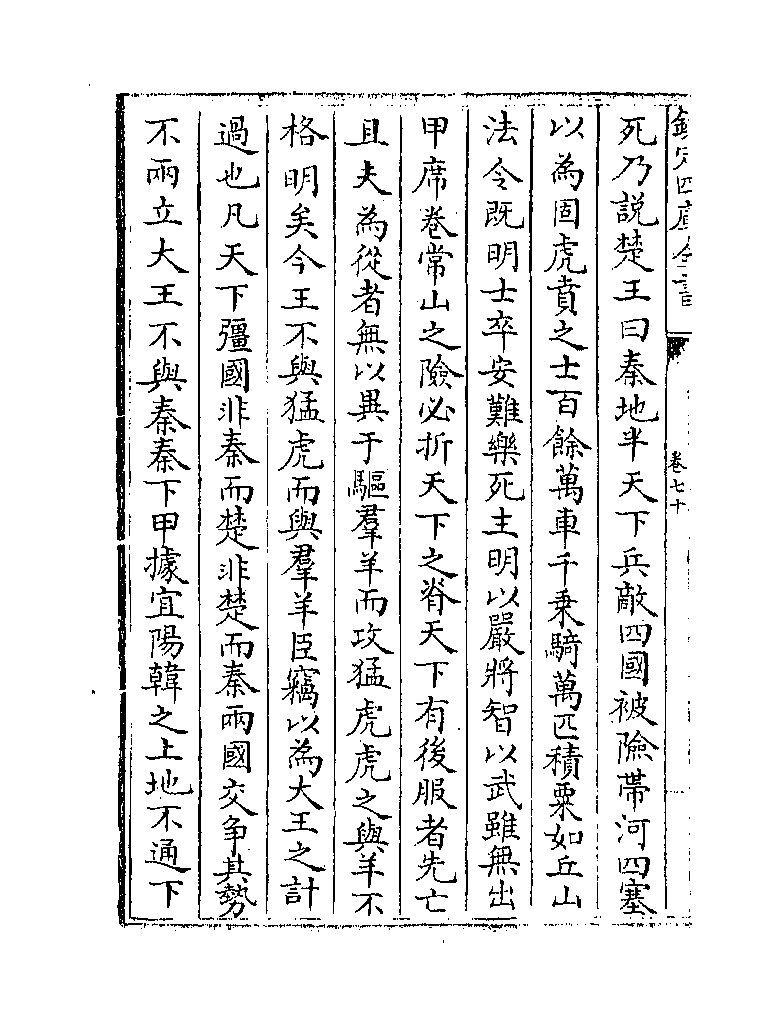 欽定四庫全書
卷七十
死乃說楚王曰秦地半天下兵敵四國被險帶河四塞
以為固虎賁之士百餘萬車千乗騎萬匹積粟如丘山
法令既明士卒安難樂死主明以嚴將智以武雖無出
甲席卷常山之險必折天下之脊天下有後服者先亡
且夫為從者無以異于驅羣羊而攻猛虎虎之與羊不
格明矣今王不與猛虎而與羣羊臣竊以為大王之計
過也凡天下彊國非秦而楚非楚而秦兩國交争其勢
不兩立大王不與秦秦下甲據宜陽韓之上地不通下